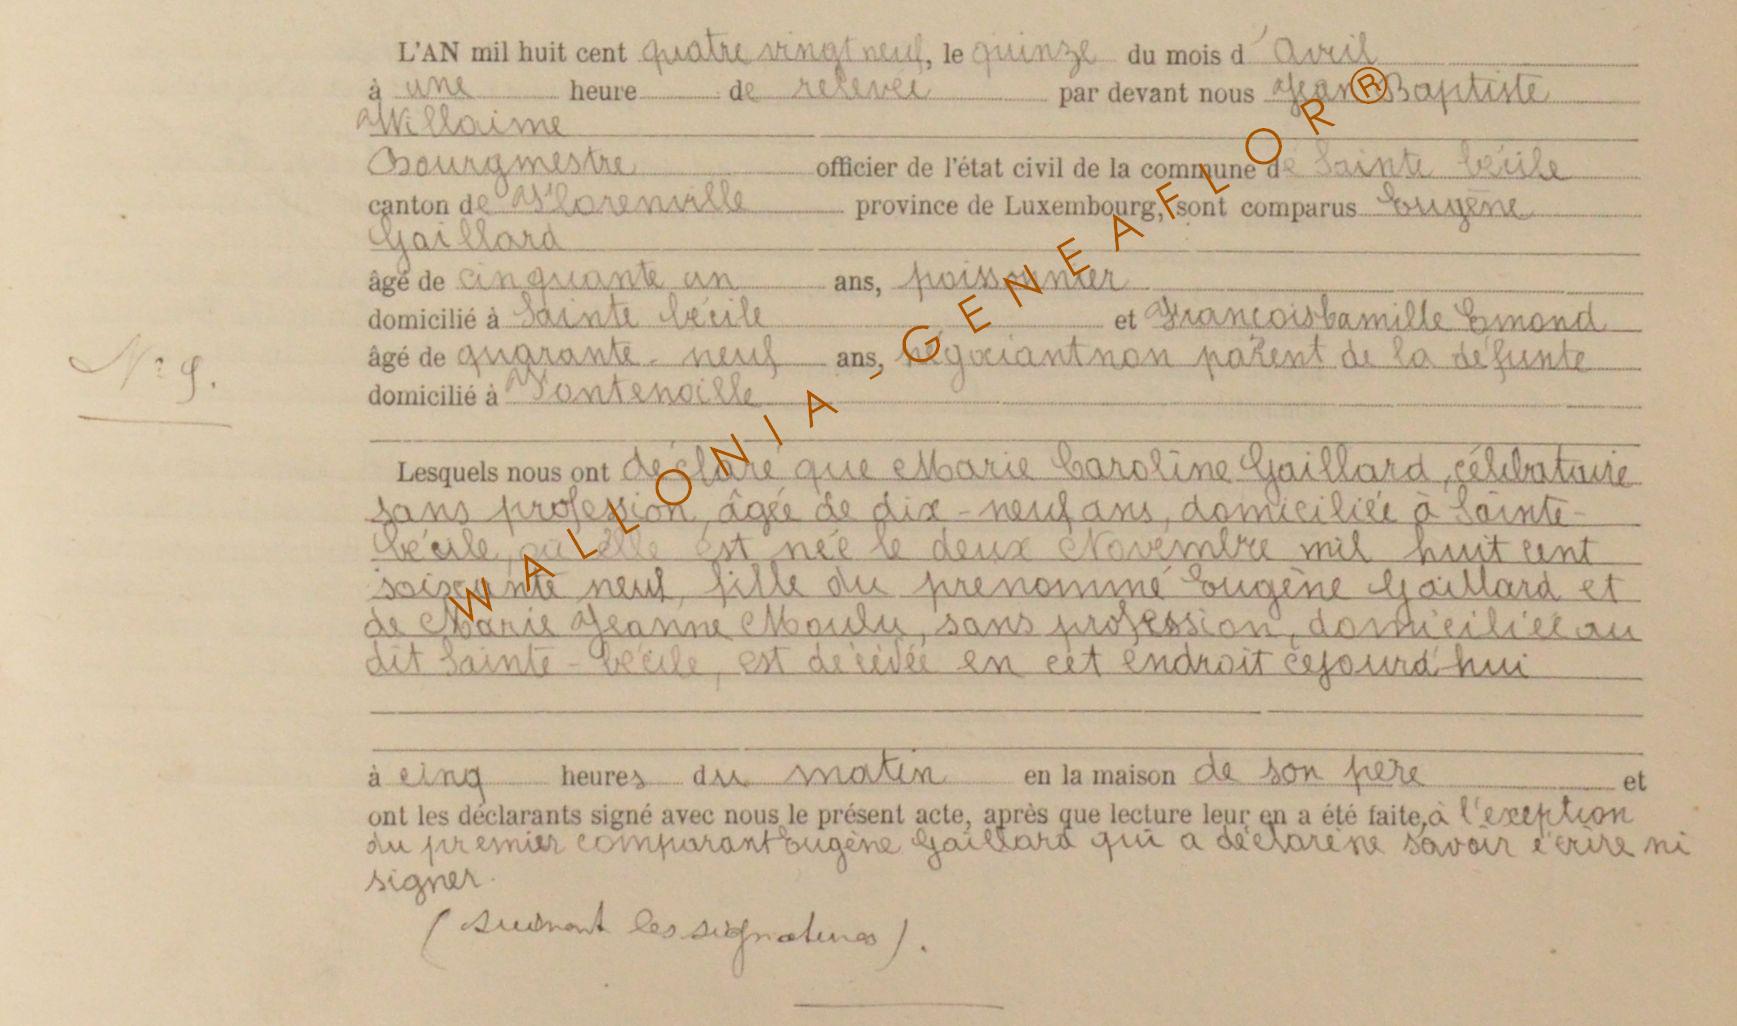 L'AN mil huit cent quatre vingt neuf, le quinze du mois d'Avril
à une heure de relevée par devant nous Jean Baptiste
Willaime
Bourgmestre officier de l'état civil de la commune de Sainte Cécile
canton de Florenville province de Luxembourg, sont comparus Eugène
Gaillard
âgé de cinquante un ans, poissonnier
domicilié à Sainte Cécile et François Camille Emond
âgé de quarante-neuf ans, négociant non parent de la défunte
N° 9.
domicilié à Fontenoille
Lesquels nous ont déclaré que Marie Caroline Gaillard, célibataire
sans profession, âgée de dix-neuf ans, domiciliée à Sainte-
Cécile, où elle est née le deux Novembre mil huit cent
soixante neuf, fille du prénommé Eugène Gaillard et
de Marie Jeanne Moulu, sans profession, domiciliée au
dit Sainte-Cécile, est décédée en cet endroit cejourd'hui
à cinq heures du matin en la maison de son père et
ont les déclarants signé avec nous le présent acte, après que lecture leur en a été faite, à l'exeption
du premier comparant Eugène Gaillard qui a déclaré ne savoir écrire ni
signer.
(suivent les signatures).
WALLONIA-GENEAFLOR®